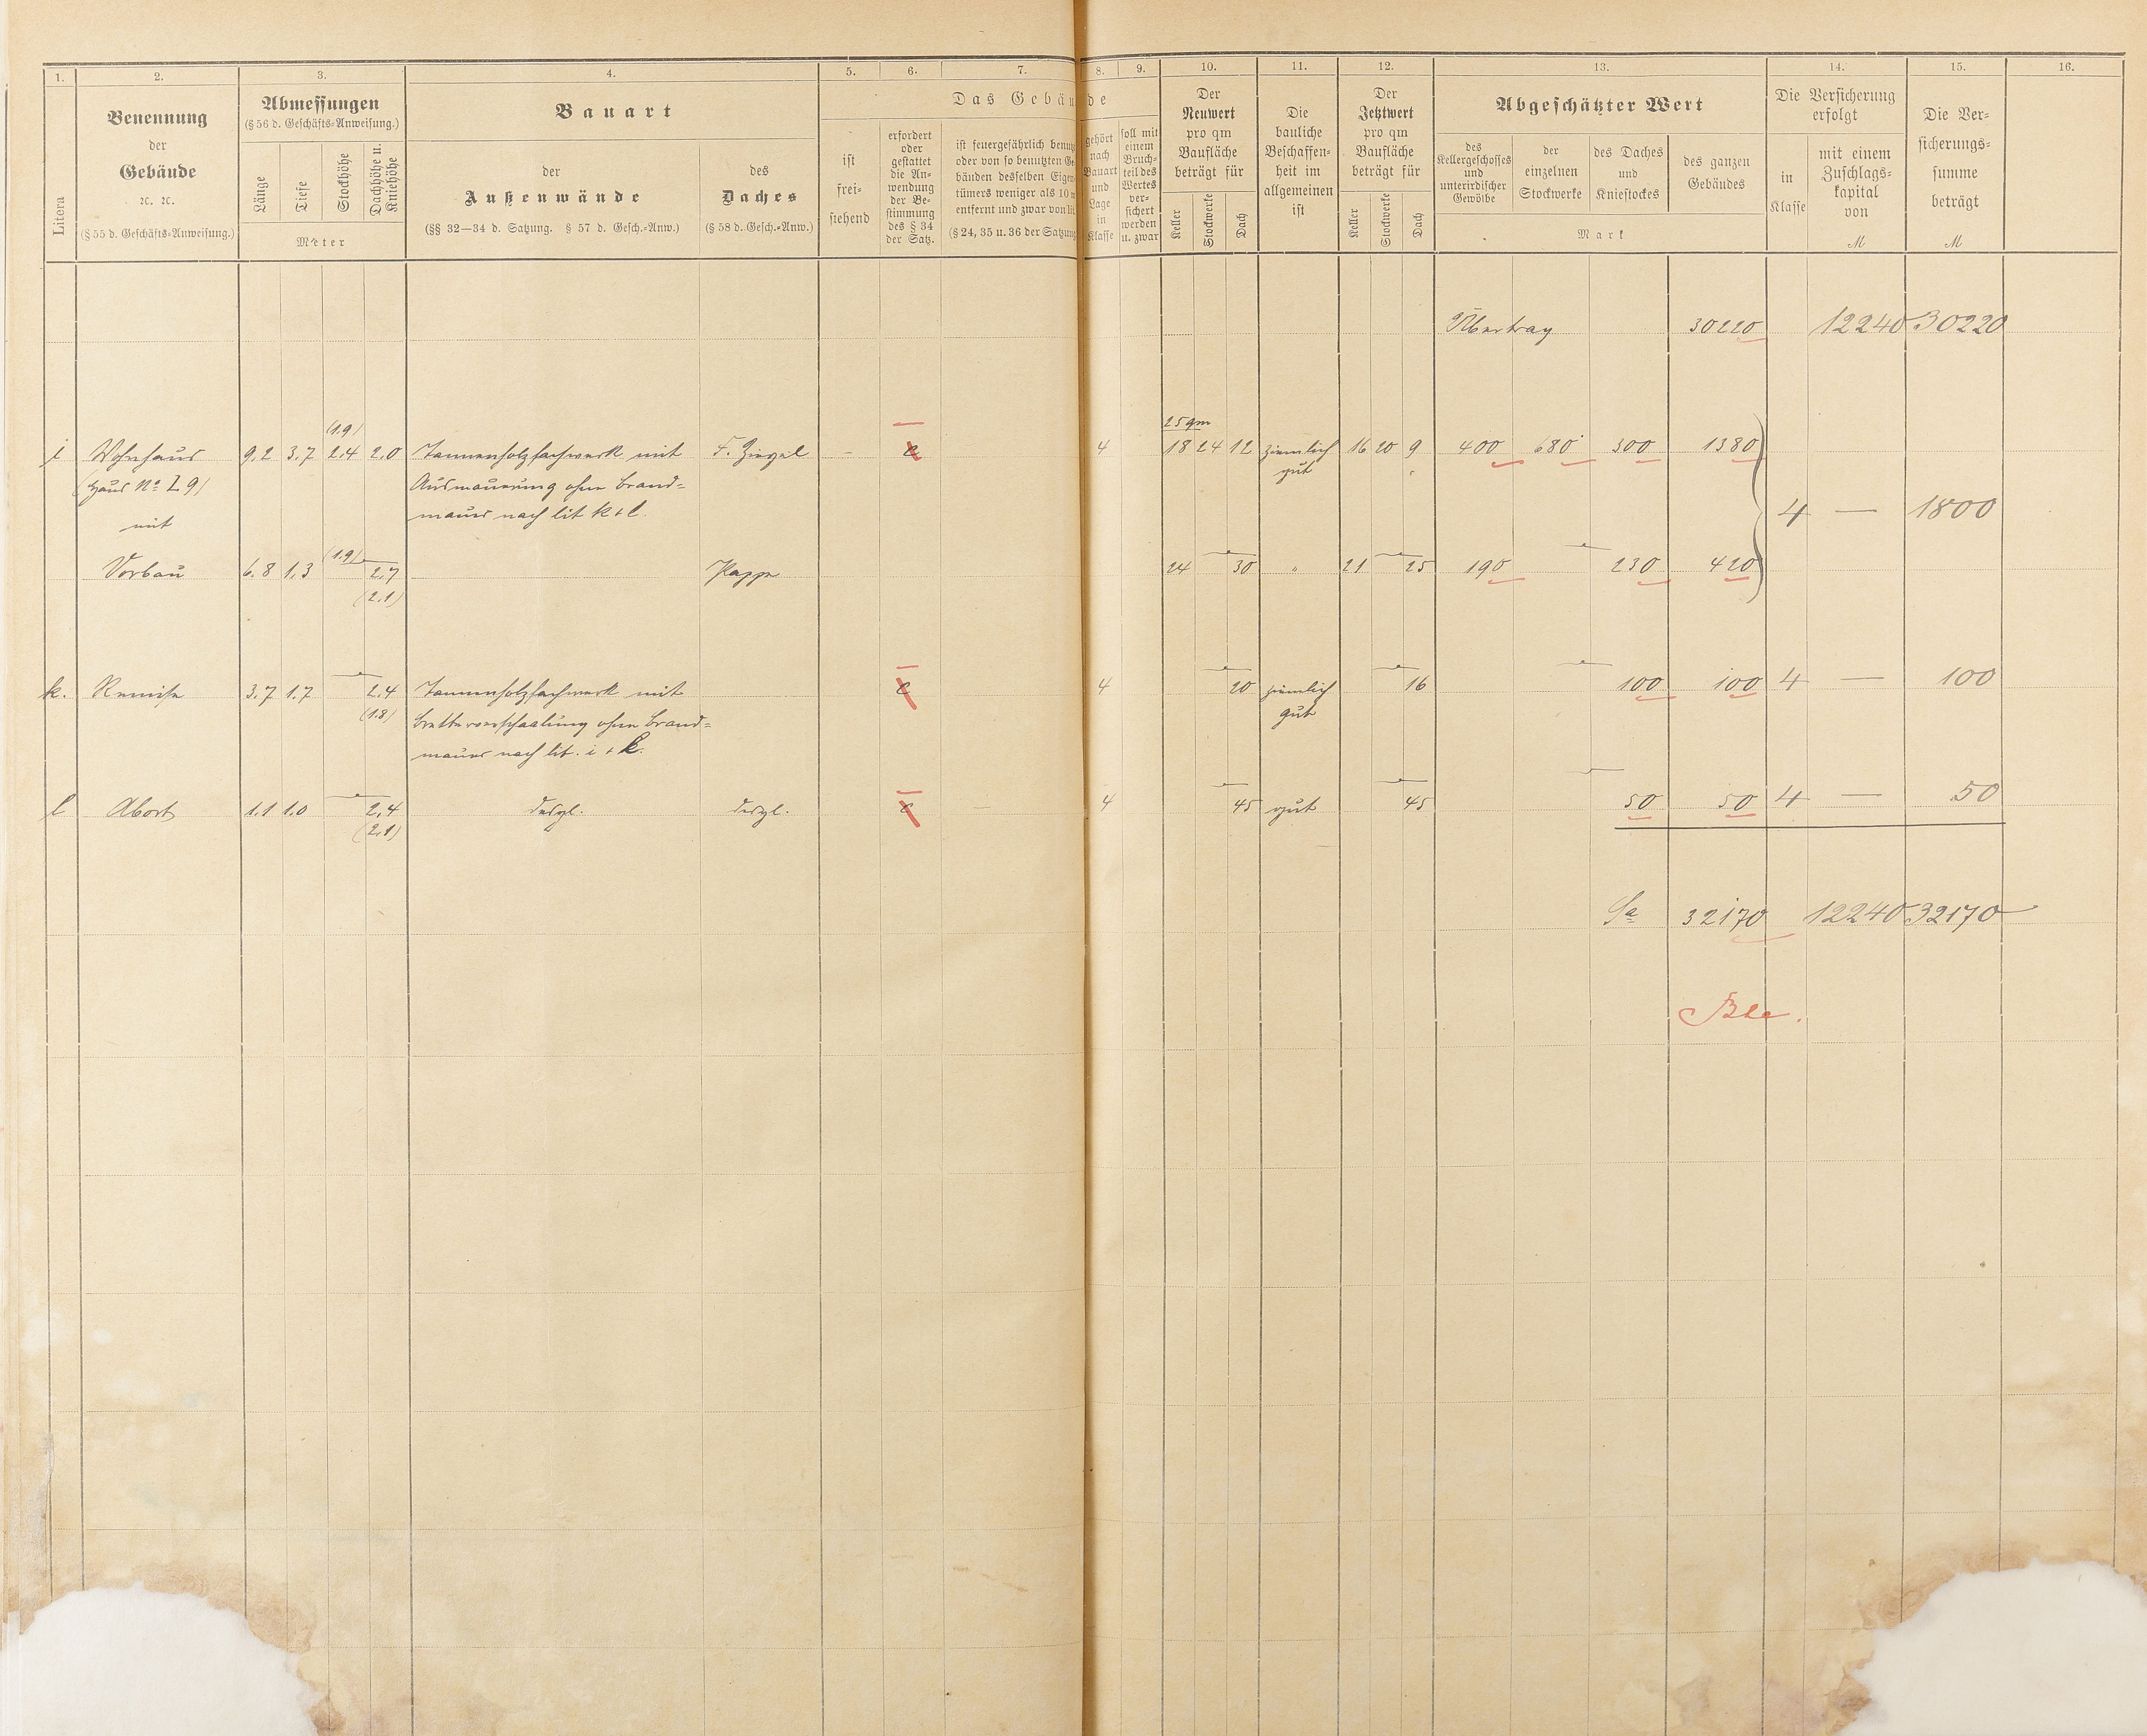 1. 2. 3. 4. 5. 6. 7. 8. 9. 10. 11. 12. 13. 14. 15. 16.
Litera
Benennung
der
Gebäude
ꝛc. ꝛc.
(§ 55 d. Geschäfts-Anweisung.)
Abmessungen
(§ 56 d. Geschäfts-Anweisung.)
Länge
Tiefe
Stockhöhe
Dachhöhe u.
Kniehöhe
Meter
Bauart
der
Außenwände
(§§ 32—34 d. Satzung. § 57 d. Gesch.-Anw.)
des
Daches
(§ 58 d. Gesch.-Anw.)
Das Gebäude
ist
frei-
stehend
erfordert
oder
gestattet
die An-
wendung
der Be-
stimmung
des § 34
der Satz.
ist feuergefährlich benu
oder von so benutzten Ge
bänden desselben Eigen
tümers weniger als 10 m
entfernt und zwar von
(§ 24, 35 u. 36 der Satzung
gehört
nach
Bauart
und
Lage
in
Klasse
soll mit
einem
Bruch-
teil des
Wertes
ver-
sichert
werden
u. zwar
Der
Neuwert
pro qm
Baufläche
beträgt für
Keller
Stockwerke
Dach
Die
bauliche
Beschaffen-
heit im
allgemeinen
ist
Der
Jetztwert
pro qm
Baufläche
beträgt für
Keller
Stockwerke
Dach
Abgeschätzter Wert
des
Kellergeschosses
und
unterirdischer
Gewölbe
der
einzelnen
Stockwerke
des Daches
und
Kniestockes
des ganzen
Gebäudes
Mark
Die Versicherung
erfolgt
in
Klasse
mit einem
Zuschlags-
kapital
von
M
Die Ver-
sicherungs-
summe
beträgt
M
Übertrag 30220 12240 30220
(1.9) 25 qm
i Wohnhaus 9.2 3.7 2.4 2.0 Tannenholzfachwerk mit F. Ziegel — c 4 18 24 12 ziemlich 16 20 9 400 680 300 1380
(Haus No I 9) Ausmauerung ohne Brand= gut
mit mauer nach lit k + l. 4 — 1800
(1.9)
Vorbau 6.8 1.3 2.7 Pappe 24 30 " 21 25 190 230 420
(2.1)
k. Remise 3.7 1.7 2.4 Tannenholzfachwerk mit c 4 20 ziemlich 16 100 100 4 — 100
(1.8) Bretterverschaalung ohne Brand= gut
mauer nach lit. i + k.
l Abort 1.1 1.0 2.4 desgl. desgl. c — 4 45 gut 45 50 50 4 — 50
(2.1)
Sa 32170 12240 32170